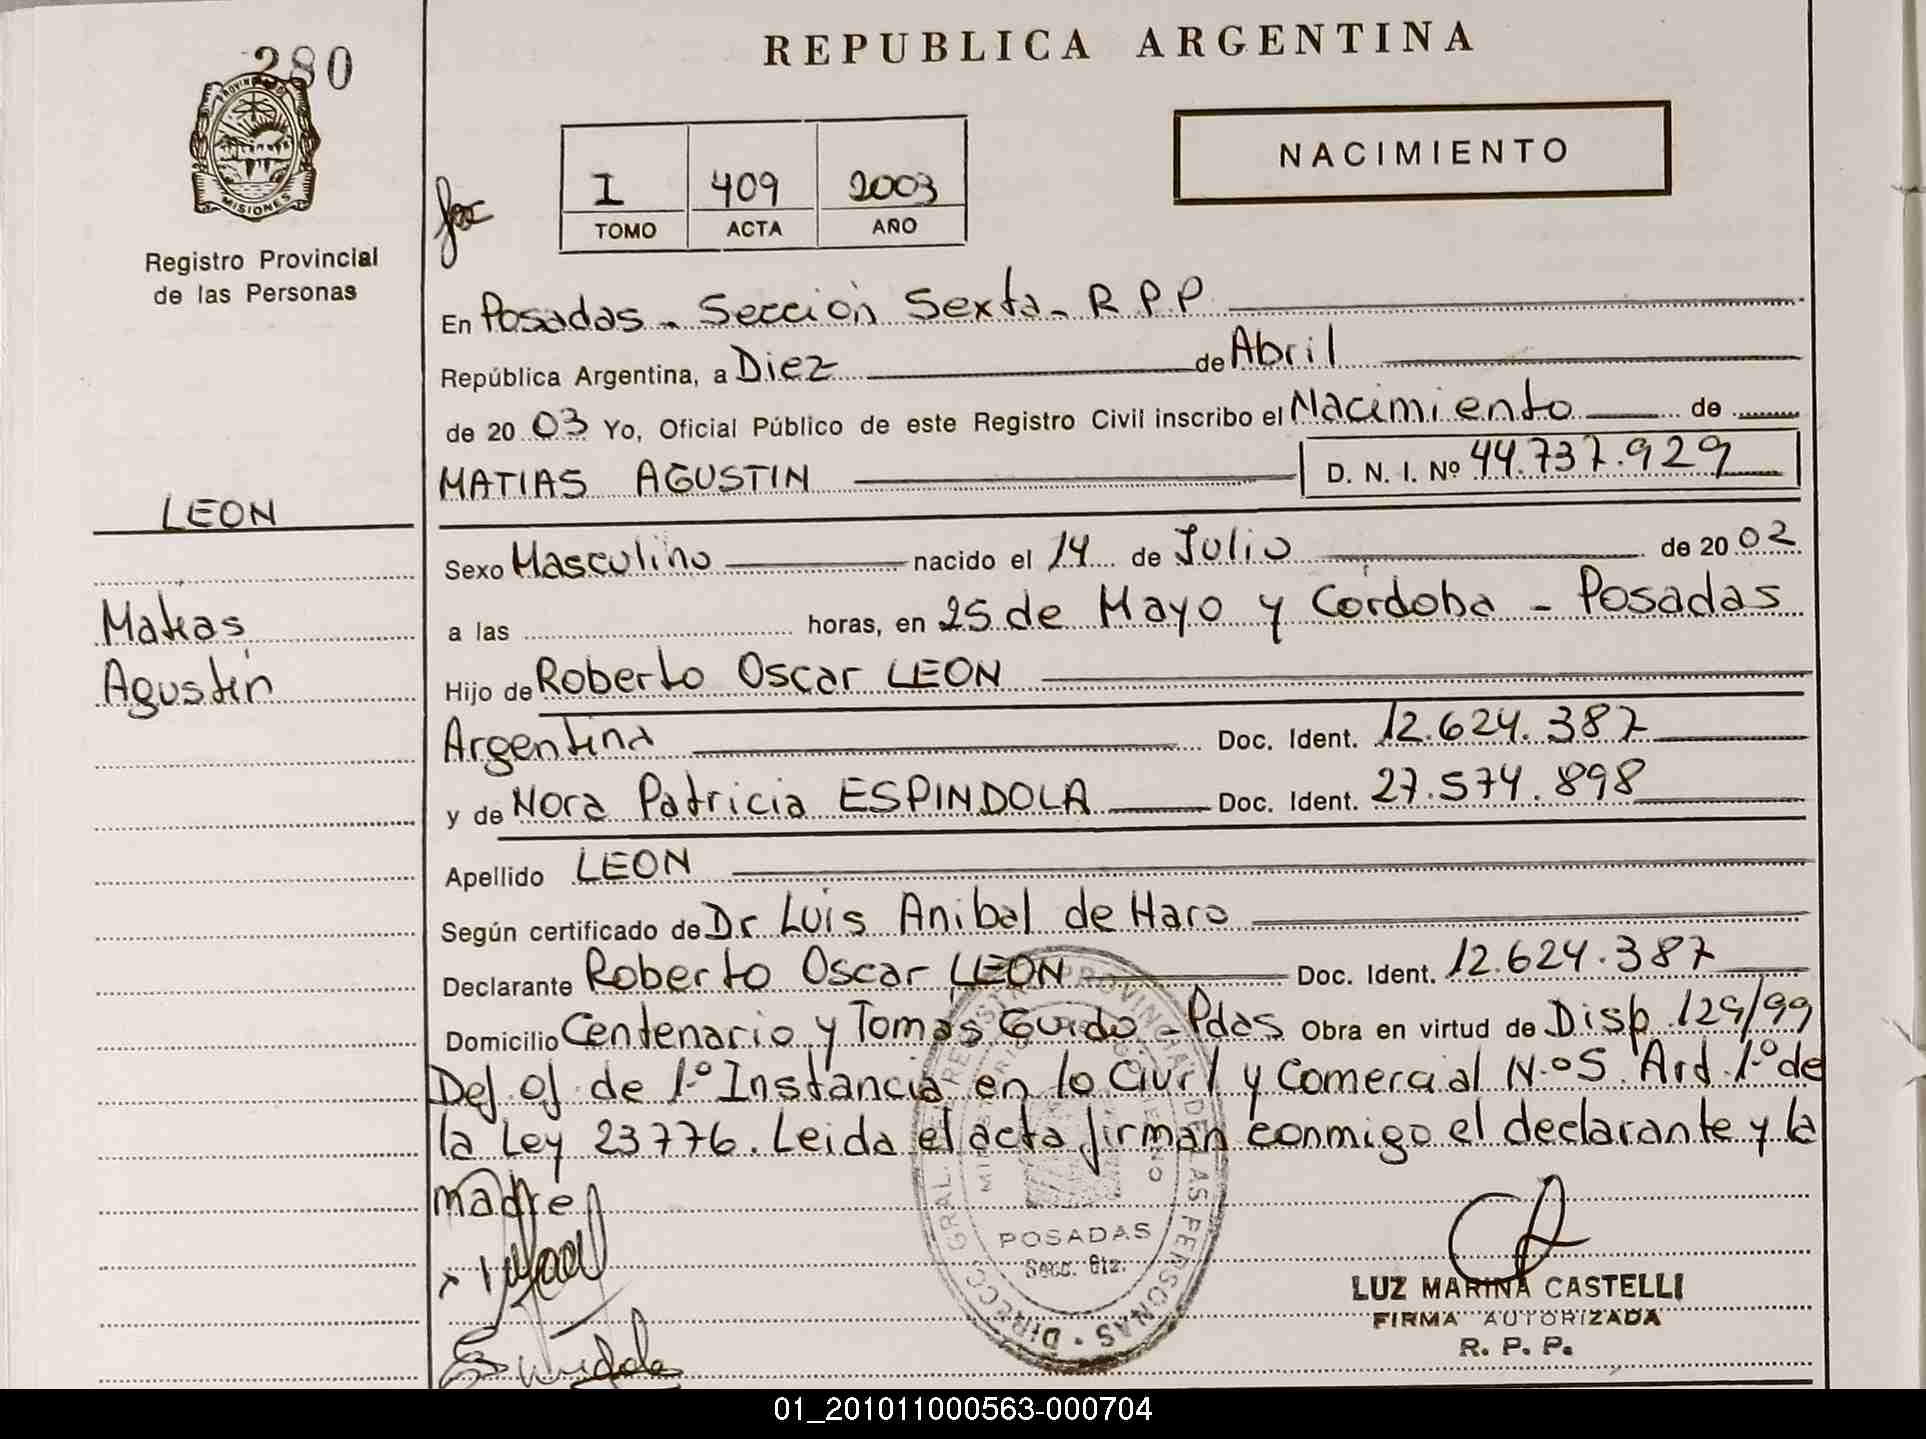 280
PROVINCIA DE
MISIONES
Registro Provincial
de las Personas
LEON
Matias
Agustin
REPUBLICA ARGENTINA
NACIMIENTO
I 409 2003
TOMO ACTA AÑO
En Posadas - Sección Sexta - R.P.P
República Argentina, a Diez de Abril
de 2003 Yo, Oficial Público de este Registro Civil inscribo el Nacimiento de
MATIAS AGUSTIN D. N. I. Nº 44.737.929
Sexo Masculino nacido el 14 de Julio de 2002
a las horas, en 25 de Mayo y Cordoba - Posadas
Hijo de Roberto Oscar LEON
Argentina Doc. Ident. 12.624.387
y de Nora Patricia ESPINDOLA Doc. Ident. 27.574.898
Apellido LEON
Según certificado de Dr Luis Anibal de Haro
Declarante Roberto Oscar LEON Doc. Ident. 12.624.387
Domicilio Centenario y Tomas Guido - Pdas Obra en virtud de Disp 129/99
Def of de 1º Instancia en lo Civil y Comercial Nº 5. Art 1º de
la Ley 23776. Leida el acta firman conmigo el declarante y la
madre
DIRECC. GRAL. REGISTRO PROVINCIAL DE LAS PERSONAS
POSADAS
Secc. 6ta.
LUZ MARINA CASTELLI
FIRMA AUTORIZADA
R. P. P.
01_201011000563-000704